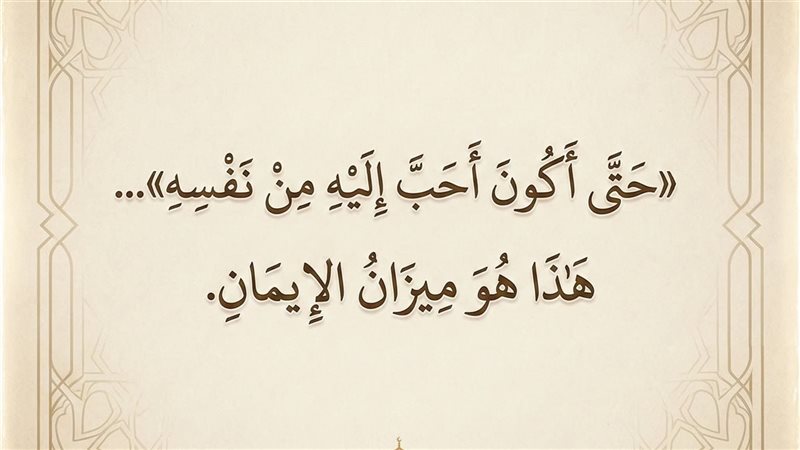 «حَتَّى أَكُونَ أَحَبَّ إِلَيْهِ مِنْ نَفْسِهِ»...
هَٰذَا هُوَ مِيزَانُ الإِيمَانِ.